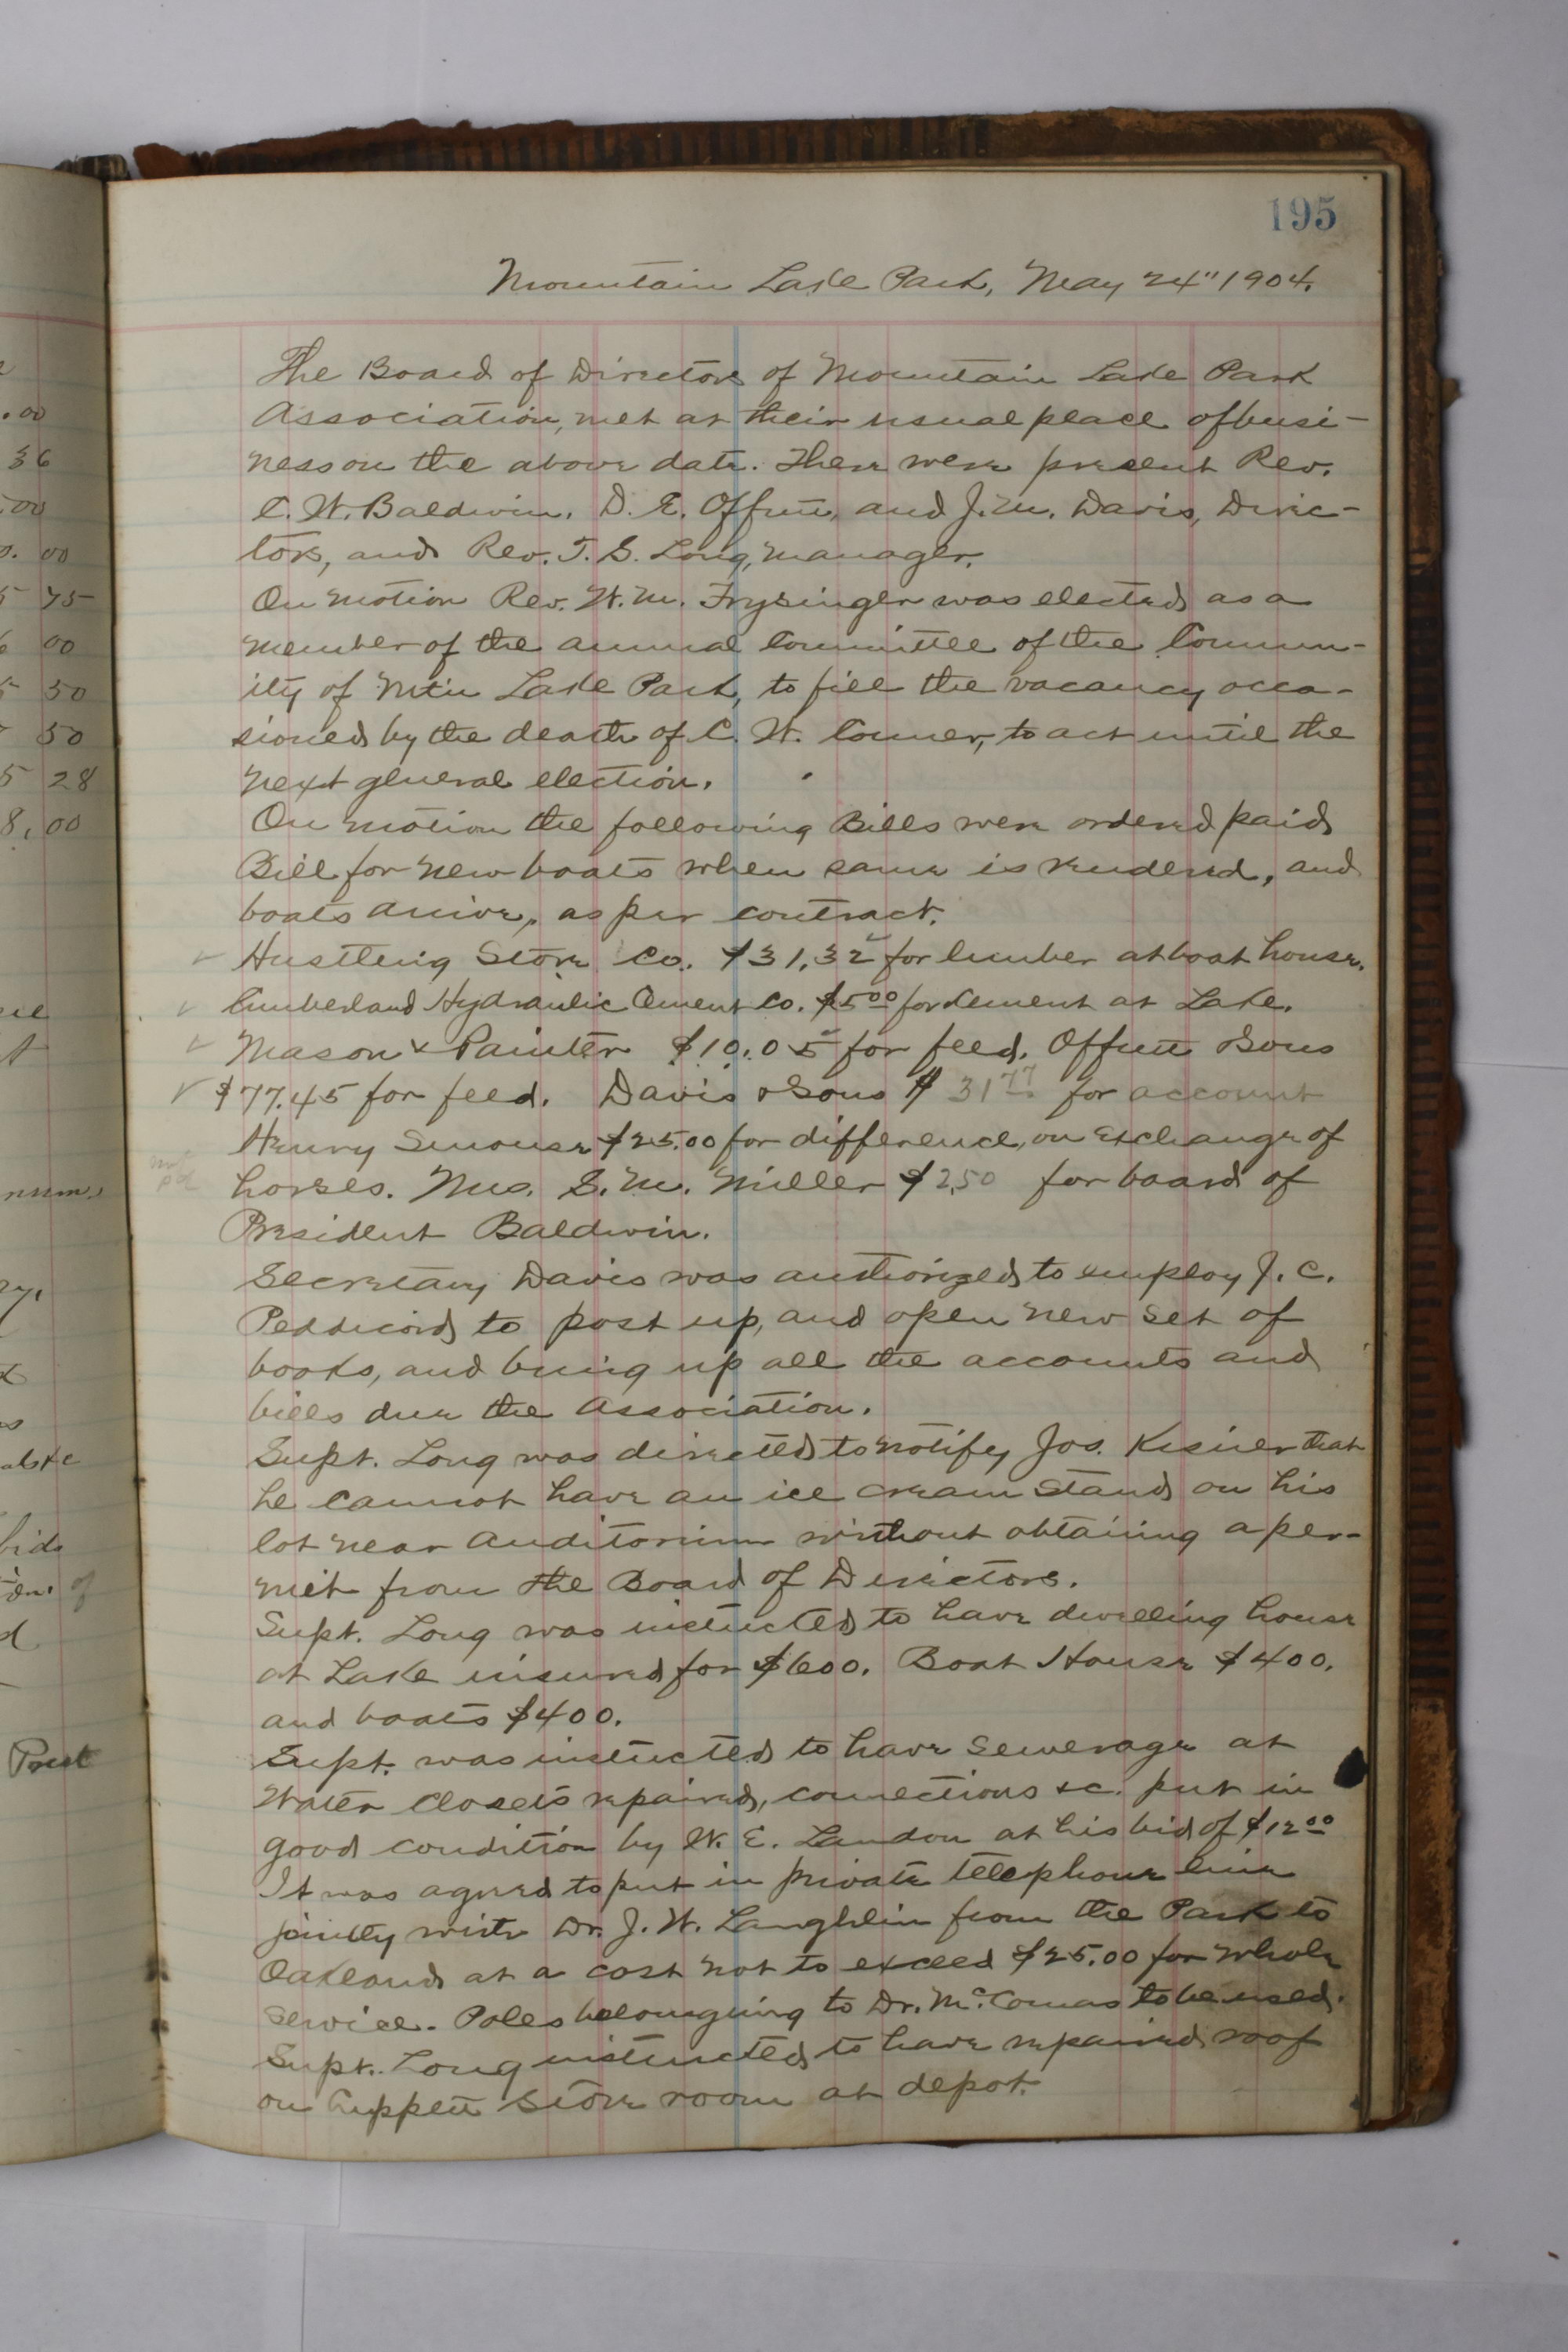 195
Mountain Lake Park, May 24" 1904.
The Board of Directors of Mountain Lake Park
Association, met at their usual place of busi-
ness on the above date. There were present Rev.
C. W. Baldwin, D. E. Offutt, and J. M. Davis, Direc-
tors, and Rev. T. S. Long, Manager.
On motion Rev. W. M. Frysinger was elected as a
member of the annual Committee of the Commun-
ity of Mt'n Lake Park, to fill the vacancy occa-
sioned by the death of C. W. Conner, to act until the
next general election.
On motion the following Bills were ordered paid
Bill for new boats when same is rendered, and
boats arrive, as per contract.
Hustling Store Co. $31.32 for lumber at boat house.
Cumberland Hydraulic Cement Co. $5 00 for Cement at Lake.
Mason & Painter $10.05 for feed. Offutt Sons
$77.45 for feed. Davis & Sons $ 31 77 for account
Henry Smouse $25.00 for difference, on exchange of
not pd
horses. Mrs. S. M. Miller $2.50 for board of
President Baldwin.
Secretary Davis was authorized to employ J. C.
Peddicord to post up, and open new set of
books, and bring up all the accounts and
bills due the Association.
Supt. Long was directed to notify Jos. Kisner that
he cannot have an ice cream stand on his
lot near Auditorium without obtaining a per-
mit from the Board of Directors.
Supt. Long was instructed to have dwelling house
at Lake insured for $600. Boat House $400.
and boats $400.
Supt. was instructed to have sewerage at
Water Closets repaired, connections &c. put in
good condition by W. E. Landon at his bid of $12 00
It was agreed to put in private telephone line
jointly with Dr. J. W. Laughlin from the Park to
Oakland at a cost not to exceed $25.00 for whole
service. Poles belonging to Dr. McComas to be used.
Supt. Long instructed to have repaired roof
on store room at depot.